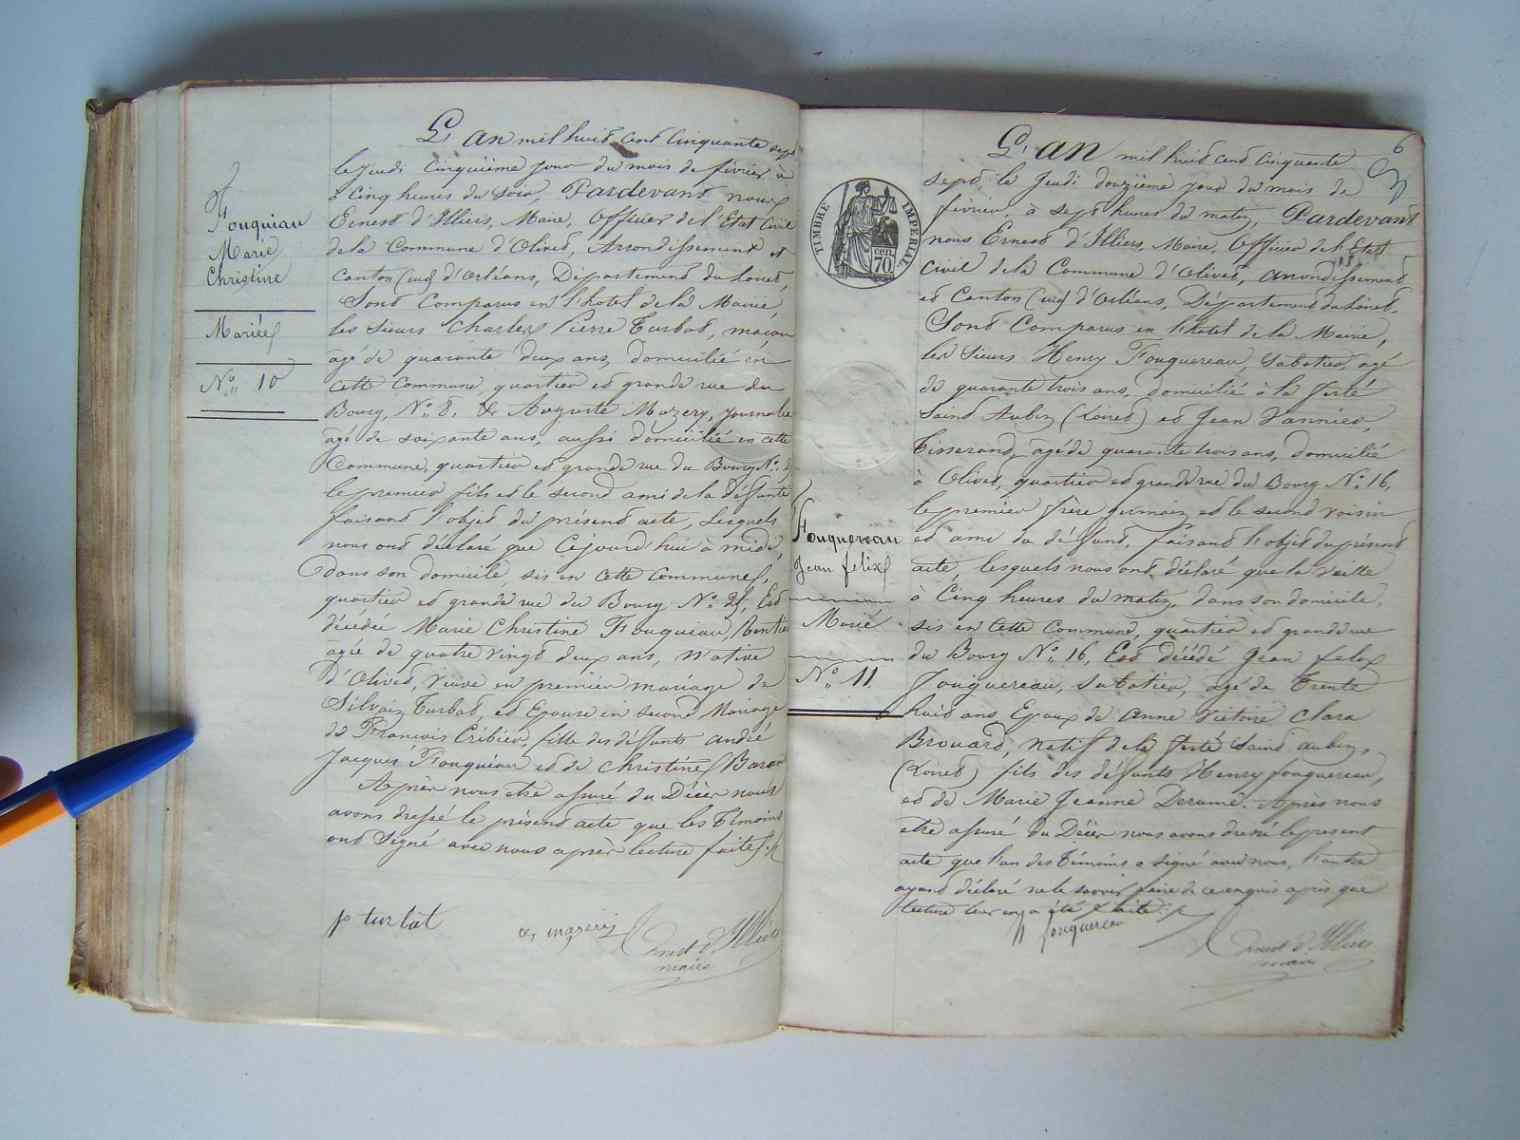 Fouquiau
Marie
Christine
Mariée
N° 10
L'an mil huit cent cinquante sept
le jeudi cinquième jour du mois de février à
cinq heures du soir, Pardevant nous
Ernest d'Illiers, Maire, Officier de l'Etat Civil
de la Commune d'Olivet, Arrondissement et
Canton (sud) d'Orléans, Département du Loiret,
Sont Comparus en l'hotel de la Mairie
les Sieurs Charles Pierre Turbat, maçon
agé de quarante deux ans, domicilié en
cette Commune quartier et grande rue du
Bourg, N° 8, & Auguste Mazery, journalier
agé de soixante ans, aussi domicilié en cette
Commune, quartier et grande rue du Bourg N°
le premier fils et le second ami de la défunte
faisant l'objet du présent acte, lesquels
nous ont déclaré que cejourd'hui à midi,
dans son domicile, sis en cette commune,
quartier et grande rue du Bourg N° Est
décédée Marie Christine Fouquiau, Rentière
agée de quatre vingt deux ans, Native
d'Olivet, veuve en premier mariage de
Silvain Turbat, et Epouse en second Mariage
de François Cribier, fille des défunts André
Jacques Fouquiau et de Christine Baron
Après nous etre assuré du Décès nous
avons dressé le présent acte que les Témoins
ont Signé avec nous après lecture faite
p turbat
mazery
Ernest d'Illiers
maire
6
TIMBRE IMPERIAL
cen.
70
Fouquereau
Jean felix
Marié
N° 11
L'an mil huit cent cinquante
sept, le Jeudi douzième jour du mois de
février, à sept heures du matin, Pardevant
nous Ernest d'Illiers, Maire, Officier de l'Etat
Civil de la Commune d'Olivet, arrondissement
et Canton (sud) d'Orléans, Département du Loiret.
Sont Comparus en l'hotel de la Mairie,
les Sieurs Henry Fouquereau, Sabotier, agé
de quarante trois ans, domicilié à la Ferté
Saint Aubin (Loiret) et Jean Vannier,
Tisserand, agé de quarante trois ans, domicilié
à Olivet, quartier et grande rue du Bourg N° 16,
le premier frère germain et le second voisin
et ami du défunt, faisant l'objet du présent
acte, lesquels nous ont déclaré que la veille
à Cinq heures du matin, dans son domicile,
sis en cette commune, quartier et grande rue
du Bourg N° 16, Est décédé Jean felix
Fouquereau, Sabotier, agé de trente
huit ans Epoux de Anne Victoire Clara
Brouard, natif de la ferté Saint aubin,
(Loiret) fils des défunts Henry fouquereau,
et de Marie Jeanne Après nous
etre assuré du Décès nous avons dressé le present
acte que l'un des témoins a signé avec nous, l'autre
ayant déclaré ne le savoir faire de ce enquis après que
lecture leur en a été faite
h fouquereau
Ernest d'Illiers
maire